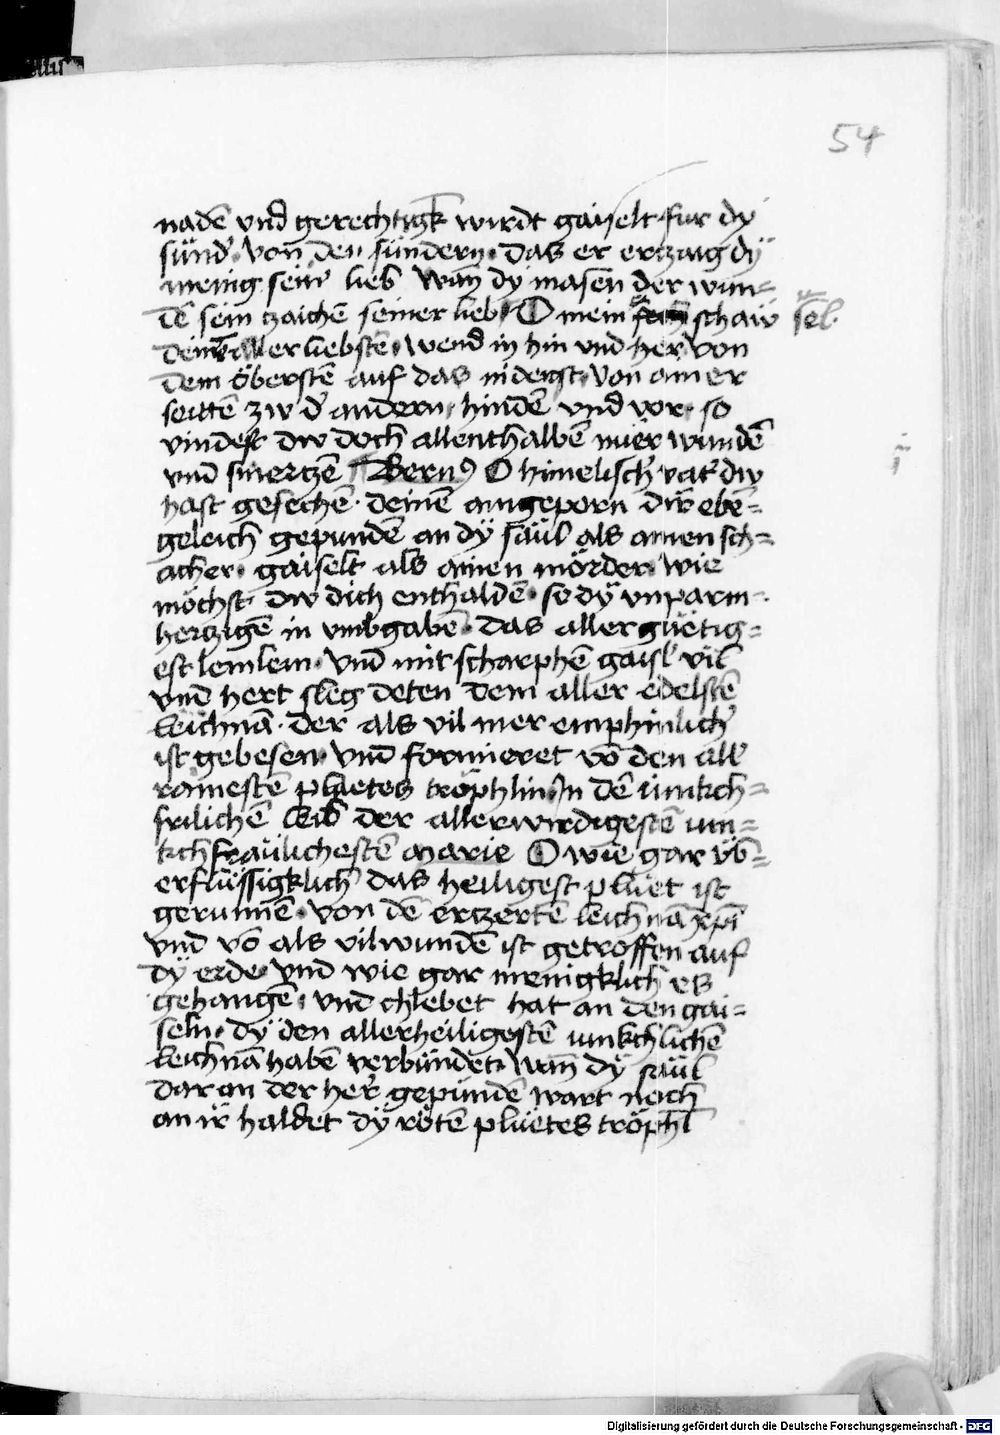 54
nadē vnd gerechtigk wirdt gaiselt fur dy
sünd᷑ · von den sündern · das er ertzaig dy
menig sein᷑ lieb wan̄ dy masen der wun=
dē sein tzaichē seiner lieb · O mein schaw sel.
aller liebstē · wend in hin vnd her von
dem öberstē auf das nidenst · von ainer
seittē zw d᷑ andern · hindē vnd vor · so
vindest dw doch allenthalbē mer wundē
vnd smertzē Bern9 O himelisch᷑ vat᷑ dw
hast gesechē · deinē aingeporn dir ebē=
geleich gepundē an dÿ säul als ainen sch=
acher · gaiselt als ainen mörder · wie
möchst dw dich enthaldē · so dÿ vnparm=
hertzigē in vmbgabē · das aller güetig=
est lemlein · vnd mit scharphē gaisl vil
vnd hert sleg deten dem aller edelstē
leichnā · der als vil mer emphintlich᷑
ist gebesen · vnd formieret vō den all᷑
rainestē pluetes tröphlin · In dē iunkch=
frilichē leib der allerwirdigestē iun=
kchfräulichestē marie O wie gar vb̄=
erflüssigklich das heiligest pluet ist
gerunnē · von dē ertzertē leichnā xpi
vnd vō als vil wundē ist getroffen auf
dÿ erde · vnd wie gar menigklich es
gehangē · vnd chlebet hat an den gai=
seln · dÿ den allerheiligestē iunkchlichē
leichnā habē verbündet · wan̄ dÿ säul
daran der her᷑ gepundē wart noch
an ir haldet dÿ rötē pluetes tröphl
Digitalisierung gefördert durch die Deutsche Forschungsgemeinschaft - DFG